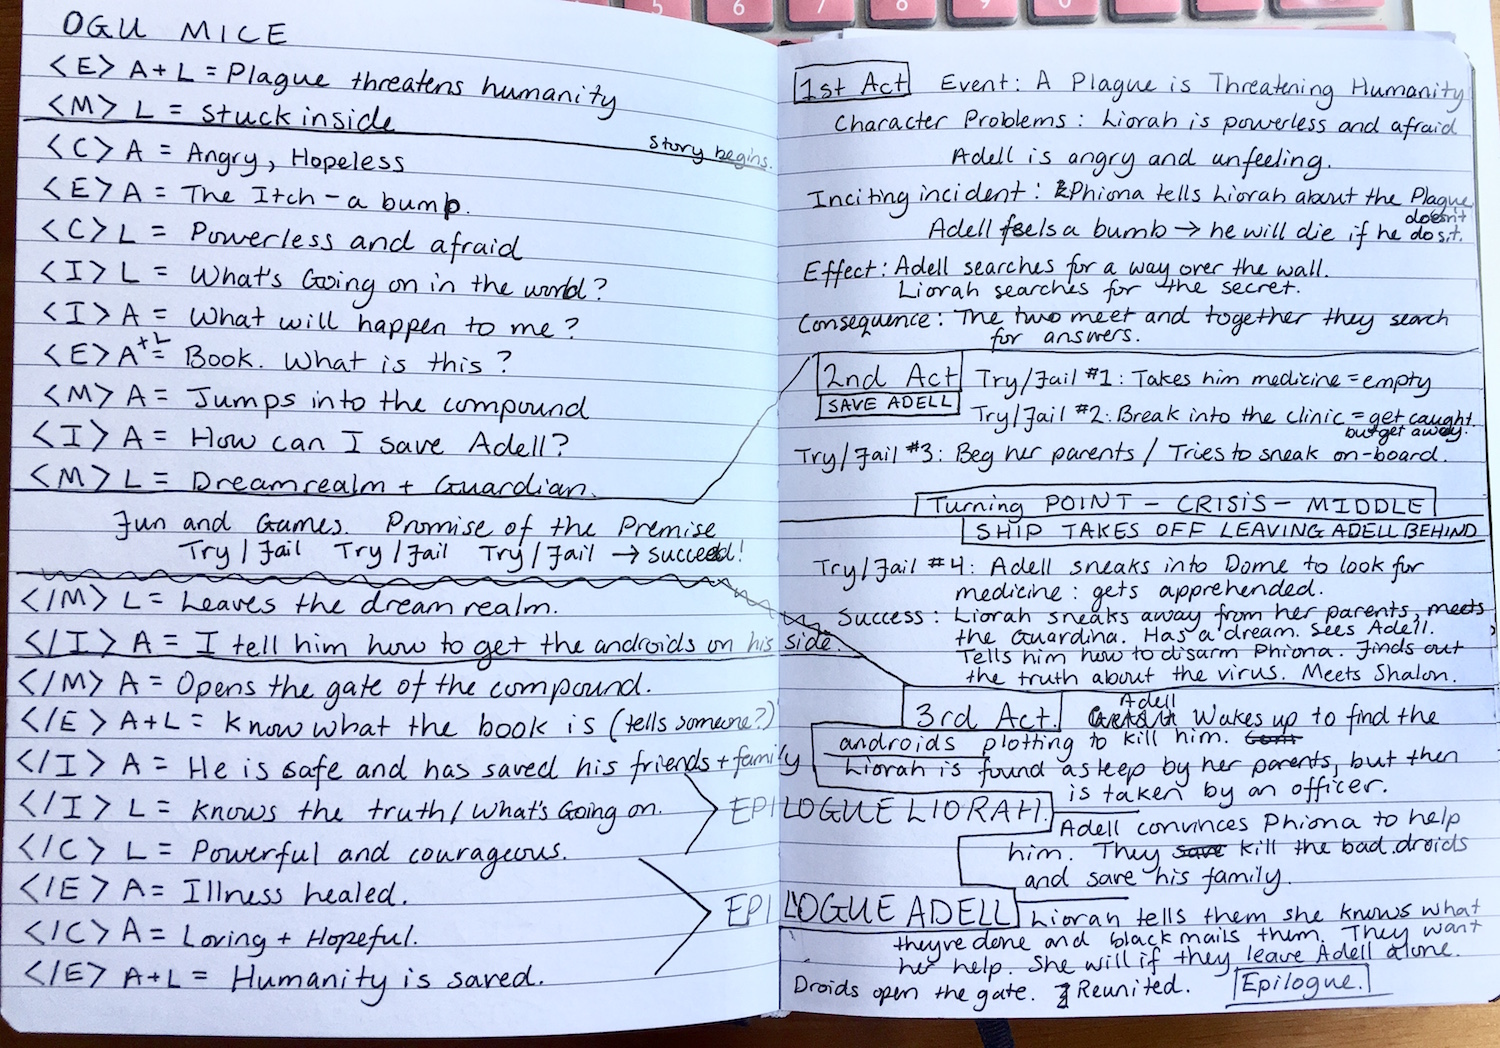 5 6 7 8 9 0
OGU MICE
<E> A+L = Plague threatens humanity
<M> L = Stuck inside
Story begins.
<C> A = Angry, Hopeless
<E> A = The Itch - a bump.
<C> L = Powerless and afraid
<I> L = What's Going on in the world?
<I> A = What will happen to me?
<E> A+L = Book. What is this?
<M> A = Jumps into the compound
<I> A = How can I save Adell?
<M> L = Dreamrealm + Guardian.
Fun and Games. Promise of the Premise
Try/Fail Try/Fail Try/Fail → succeed!
</M> L = Leaves the dream realm.
</I> A = I tell him how to get the androids on his side.
</M> A = Opens the gate of the compound.
</E> A+L = Know what the book is (tells someone?)
</I> A = He is safe and has saved his friends + family
</I> L = Knows the truth/What's Going on.
</C> L = Powerful and courageous.
</E> A = Illness healed.
</C> A = Loving + Hopeful.
</E> A+L = Humanity is saved.
1st Act Event: A Plague is Threatening Humanity
Character Problems: Liorah is powerless and afraid
Adell is angry and unfeeling.
Inciting incident: Phiona tells Liorah about the Plague
Adell feels a bumb → he will die if he doesn't.
Effect: Adell searches for a way over the wall.
Liorah searches for the secret.
Consequence: The two meet and together they search
for answers.
2nd Act Try/Fail #1: Takes him medicine = empty
SAVE ADELL
Try/Fail #2: Break into the clinic = get caught
but get away.
Try/Fail #3: Beg her parents / Tries to sneak on-board.
Turning POINT - CRISIS - MIDDLE
SHIP TAKES OFF LEAVING ADELL BEHIND
Try/Fail #4: Adell sneaks into Dome to look for
medicine: gets apprehended.
Success: Liorah sneaks away from her parents, meets
the Guardina. Has a dream. Sees Adell.
Tells him how to disarm Phiona. Finds out
the truth about the virus. Meets Shalon.
3rd Act. Adell Wakes up to find the
androids plotting to kill him.
Liorah is found asleep by her parents, but then
is taken by an officer.
EPILOGUE LIORAH.
Adell convinces Phiona to help
him. They save kill the bad droids
and save his family.
EPILOGUE ADELL
Liorah tells them she knows what
theyre done and black mails them. They want
her help. She will if they leave Adell alone.
Droids open the gate. Reunited. Epilogue.